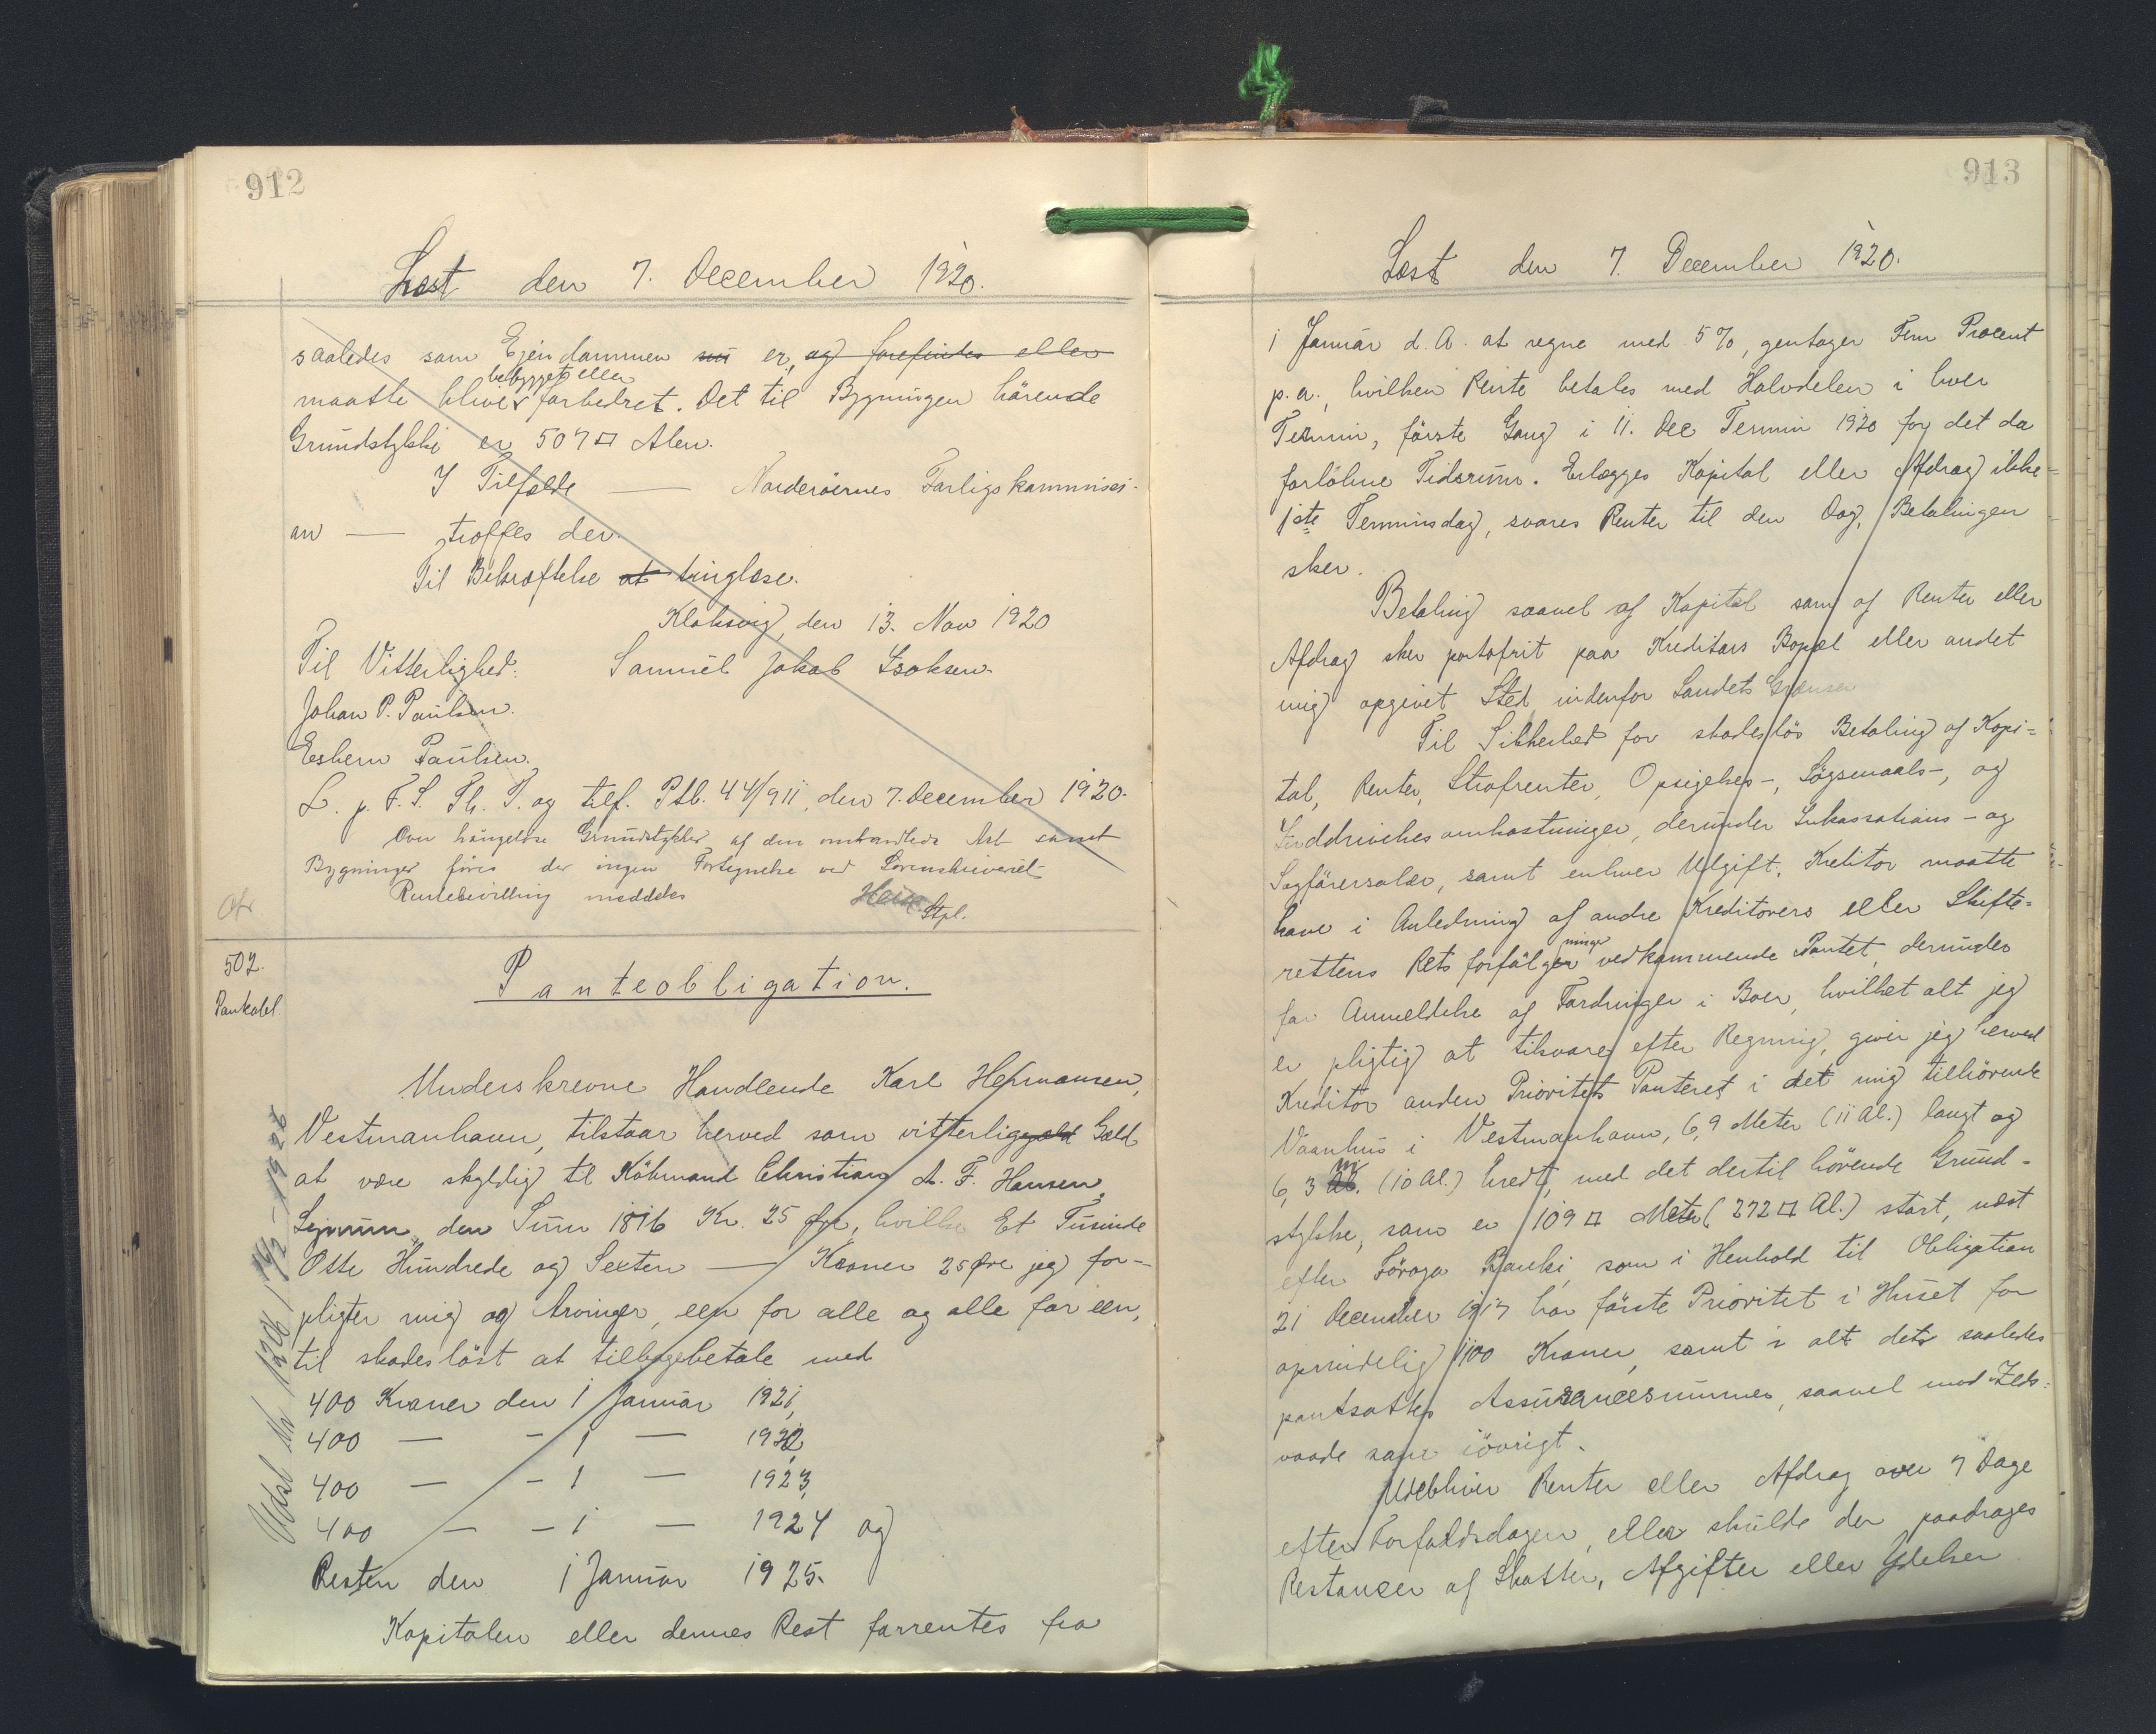 912
Læst den 7. December 1920.
saaledes som Ejendommen nu er, og forefindes eller
bebygget eller
maatte blive forbedret. Det til Bygningen hörende
Grundstykke er 507 □ Alen.
I Tilfælde — Norderöernes Forligskommissi-
on — træffes der.
Til Bekræftelse at tinglæse.
Klaksvig, den 13. Nov 1920
Til Vitterlighed: Samuel Jakob Isaksen.
Johan P. Paulsen.
Esbern Paulsen.
L. p. F. S. Th. T. og tilf. Ptb. 44/911, den 7. December 1920.
Over Grundstykker af den omhandlede Art samt
Bygninger föres der ingen Fortegnelse ved Sorenskriveriet
meddeles
Stpl.
502.
Pantobl.
Panteobligation.
Underskrevne Handlende Karl Hermansen,
Vestmanhavn, tilstaar herved som vitterliggæld Gæld
at være skyldig til Köbmand Christian A. F. Hansen,
den Sum 1816 Kr. 25 Øre, hvilke Et Tusinde
Otte Hundrede og Sexten — Kroner 25 Øre jeg for-
pligter mig og Arvinger, een for alle og alle for een,
til skadeslöst at tilbagebetale med
400 Kroner den 1 Januar 1921,
400 — - 1 — 1922,
400 — - 1 — 1923,
400 — - 1 — 1924 og
Resten den 1 Januar 1925.
Kapitalen eller dennes Rest forrentes fra
913
Læst den 7. December 1920.
1 Januar d. A. at regne med 5 %, gentager Fem Procent
p. a., hvilken Rente betales med Halvdelen i hver
Termin, förste Gang i 11. Dec Termin 1920 for det da
forlöbne Tidsrum. Erlægges Kapital eller Afdrag ikke
1ste Terminsdag, svares Renter til den Dag, Betalingen
sker.
Betaling saavel af Kapital som af Renter eller
Afdrag sker portofrit paa Kreditors Bopæl eller andet
mig opgivet Sted indenfor Landets Grænser
Til Sikkerhed for skadeslös Betaling af Kapi=
tal, Renter, Strafrenter, Opsigelses-, Sögsmaals-, og
Inddrivelsesomkostninger, derunder Inkassations- og
Sagförersalær, samt enhver Udgift, Kreditor maatte
have i Anledning af andre Kreditorers eller Skifte=
ninger
rettens Rets forfölger vedkommende Pantet, derunder
for Anmeldelse af Fordringer i Boer, hvilket alt jeg
er pligtig at tilsvare efter Regning, giver jeg herved
Kreditor anden Prioritets Panteret i det mig tilhörende
Vaanhus i Vestmanhavn, 6,9 Meter (11 Al.) langt og
m
6,3 Al. (10 Al.) bredt, med det dertil hörende Grund-
stykke, som er 109 □ Meter (272 □ Al.) stort, næst
efter Föroya Banki, som i Henhold til Obligation
21 December 1917 har förste Prioritet i Huset for
oprindelig 1100 Kroner, samt i alt dets saaledes
pantsattes Assurancesummer, saavel mod Ilds=
vaade som iövrigt.
Udebliver Renter eller Afdrag over 7 Dage
efter Forfaldsdagen, eller skulde der paadrages
Restancer af Skatter, Afgifter eller Ydelser